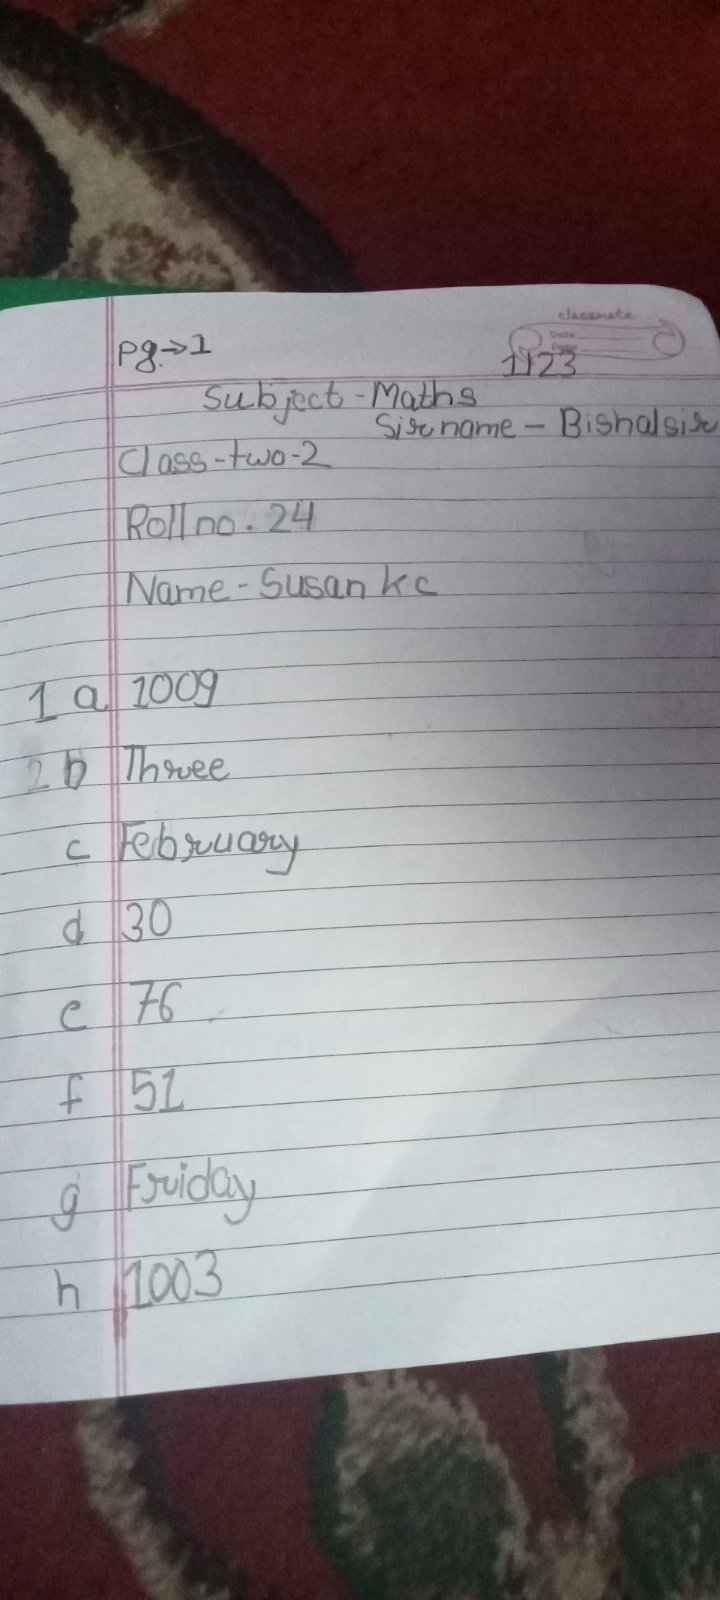 classmate
Date
Page
pg.→1
1123
Subject-Maths
Sir name - Bishal sir
Class-two-2
Roll no. 24
Name - Susan kc
1 a 1009
2 b Three
c February
d 30
e 76
f 51
g Friday
h 1003